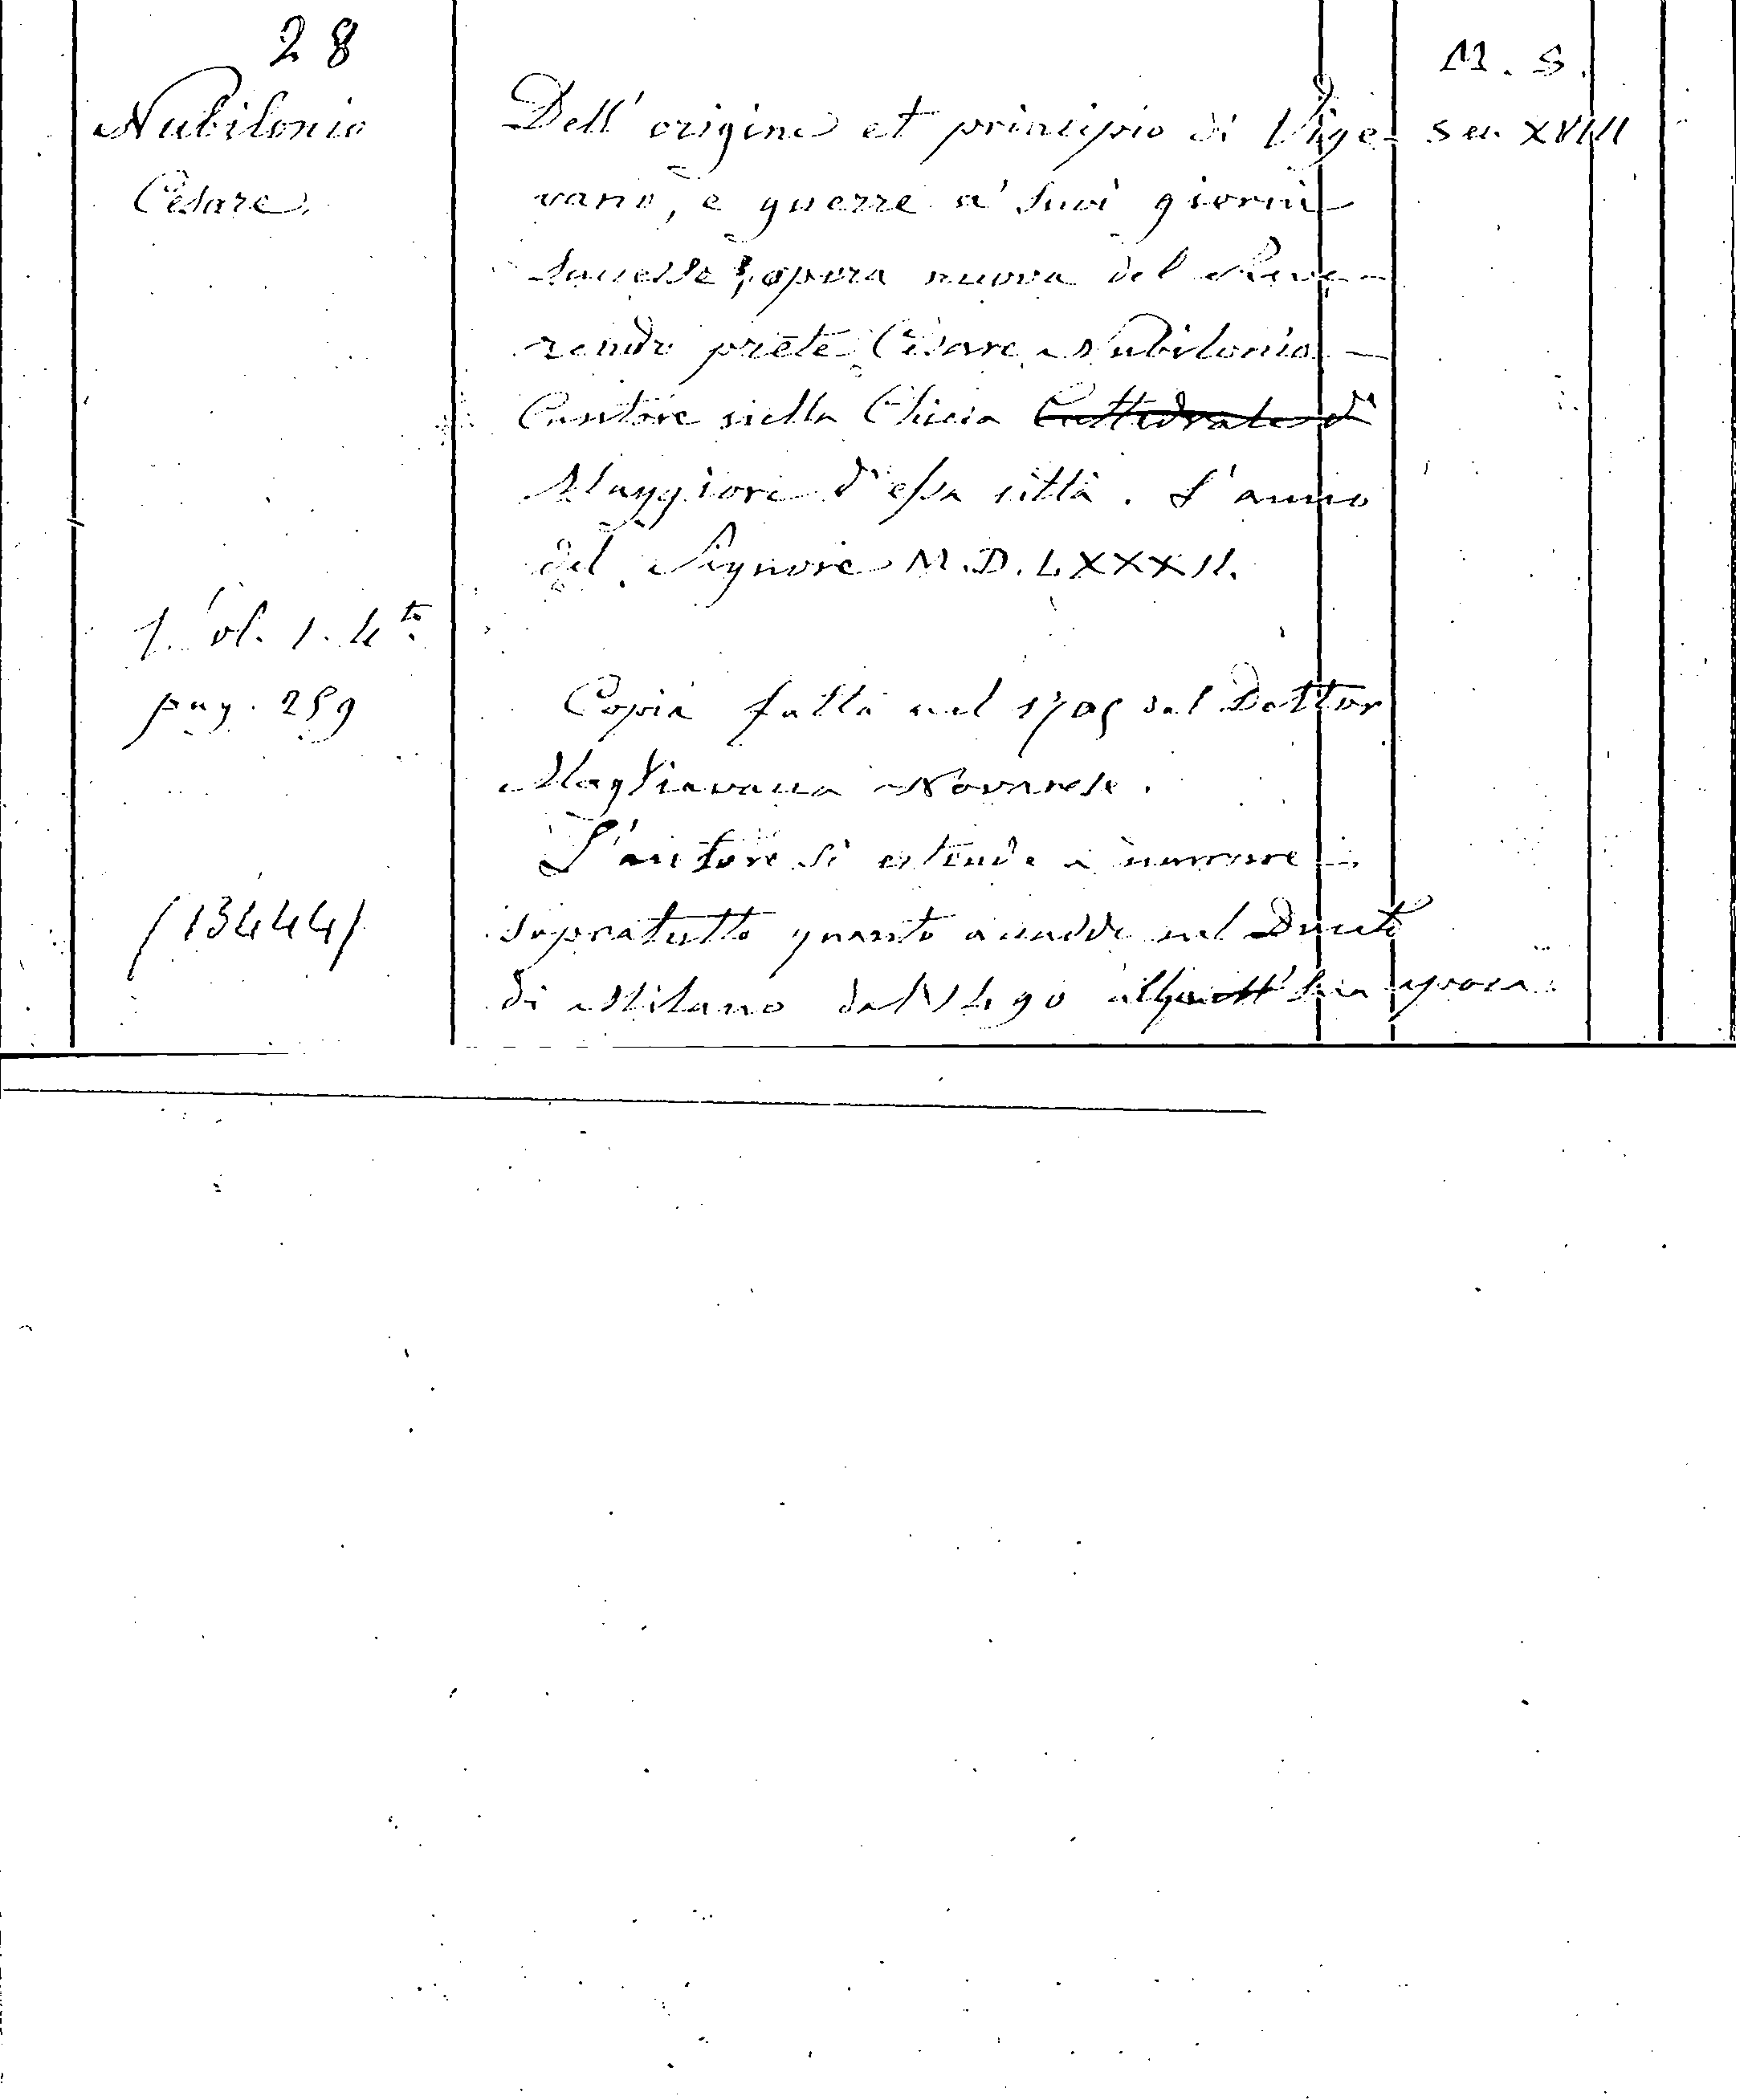 28
Nubilonio
Cesare.
Dell' origine et principio di Vige-
vano, e guerre a' suoi giorni
successe, opera nuova del Reve-
rendo prete Cesare Nubilonio
Cantore nella Chiesa Cattedrale di
Maggiore d'essa città. L'anno
del Signore M.D.LXXXII.
M. S.
Sec. XVIII
Vol. 1. 4to
pag. 259
(13444)
Copia fatta nel 1705 dal Dottor
Magliavacca Novarese.
L'autore si estende a narrare
sopratutto quanto accadde nel Ducato
di Milano dal 1490 alla sua epoca.